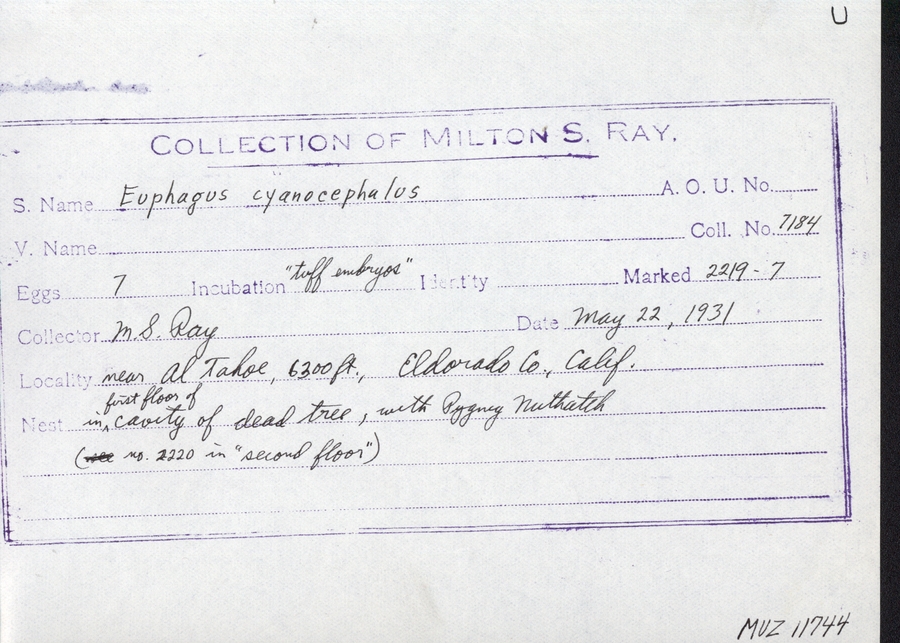 U
COLLECTION OF MILTON S. RAY.
S. Name Euphagus cyanocephalus A. O. U. No.
V. Name Coll. No. 7184
Eggs 7 Incubation "tuff embryos" Identity Marked 2219-7
Collector M.S. Ray Date May 22, 1931
Locality near Al Tahoe, 6300 ft., Eldorado Co., Calif.
first floor of
Nest in, cavity of dead tree, with Pygmy Nuthatch
(see no. 2220 in "second floor")
MVZ 11744